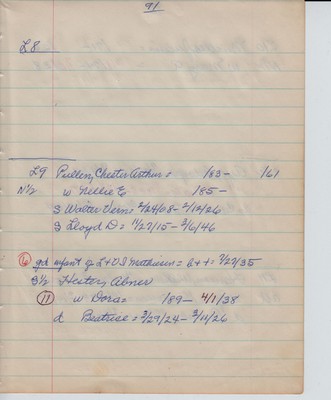 91
L8
L9 Pullen, Chester Arthur = 183- 161
N½ w Nellie E 185-
S Walter Vern = 2/24/08 - 2/12/26
S Lloyd D = 11/27/15 - 3/6/46
6 gch infant of L+VI Mathieus = b+t = 7/27/35
S½ Hester, Abner
11 w Dora = 189- 4/1/38
d Beatrice = 3/29/24 - 3/11/26